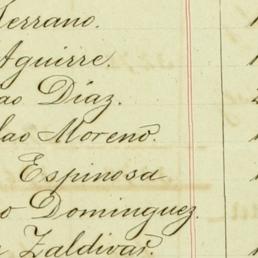 Serrano.
Aguirre.
ao Díaz.
lao Moreno.
Espinosa
o Dominguez.
Zaldivar.